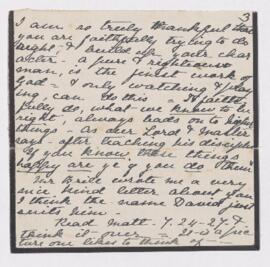 3
I am so truly thankful that
you are faithfully trying to do
right, & build up your char
acter - a pure & righteous
man, is the finest work of
God - & only watching & pray
ing can do this - It faith
fully do, what we know to be
right, always leads on to higher
things. As our Lord & Master
says - after teaching his disciples
If you know, these things
happy are ye if you do them
Mr wrote me a very
nice kind letter about you
I think the name David just
suits him -
Read Matt. 7. 24-27 &
think it over - it is a pic
ture one likes to think of -